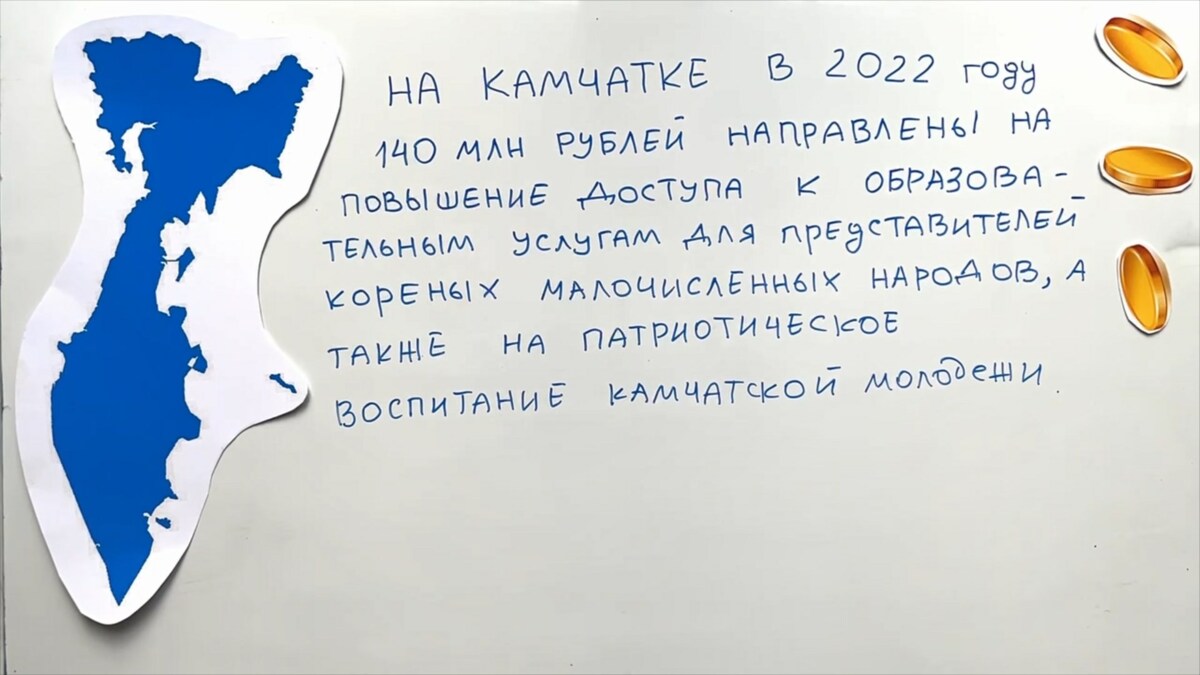 НА КАМЧАТКЕ В 2022 году
140 МЛН РУБЛЕЙ НАПРАВЛЕНЫ НА
ПОВЫШЕНИЕ ДОСТУПА К ОБРАЗОВА-
ТЕЛЬНЫМ УСЛУГАМ ДЛЯ ПРЕДСТАВИТЕЛЕЙ
КОРЕНЫХ МАЛОЧИСЛЕННЫХ НАРОДОВ, А
ТАКЖЕ НА ПАТРИОТИЧЕСКОЕ
ВОСПИТАНИЕ КАМЧАТСКОЙ МОЛОДЕЖИ.